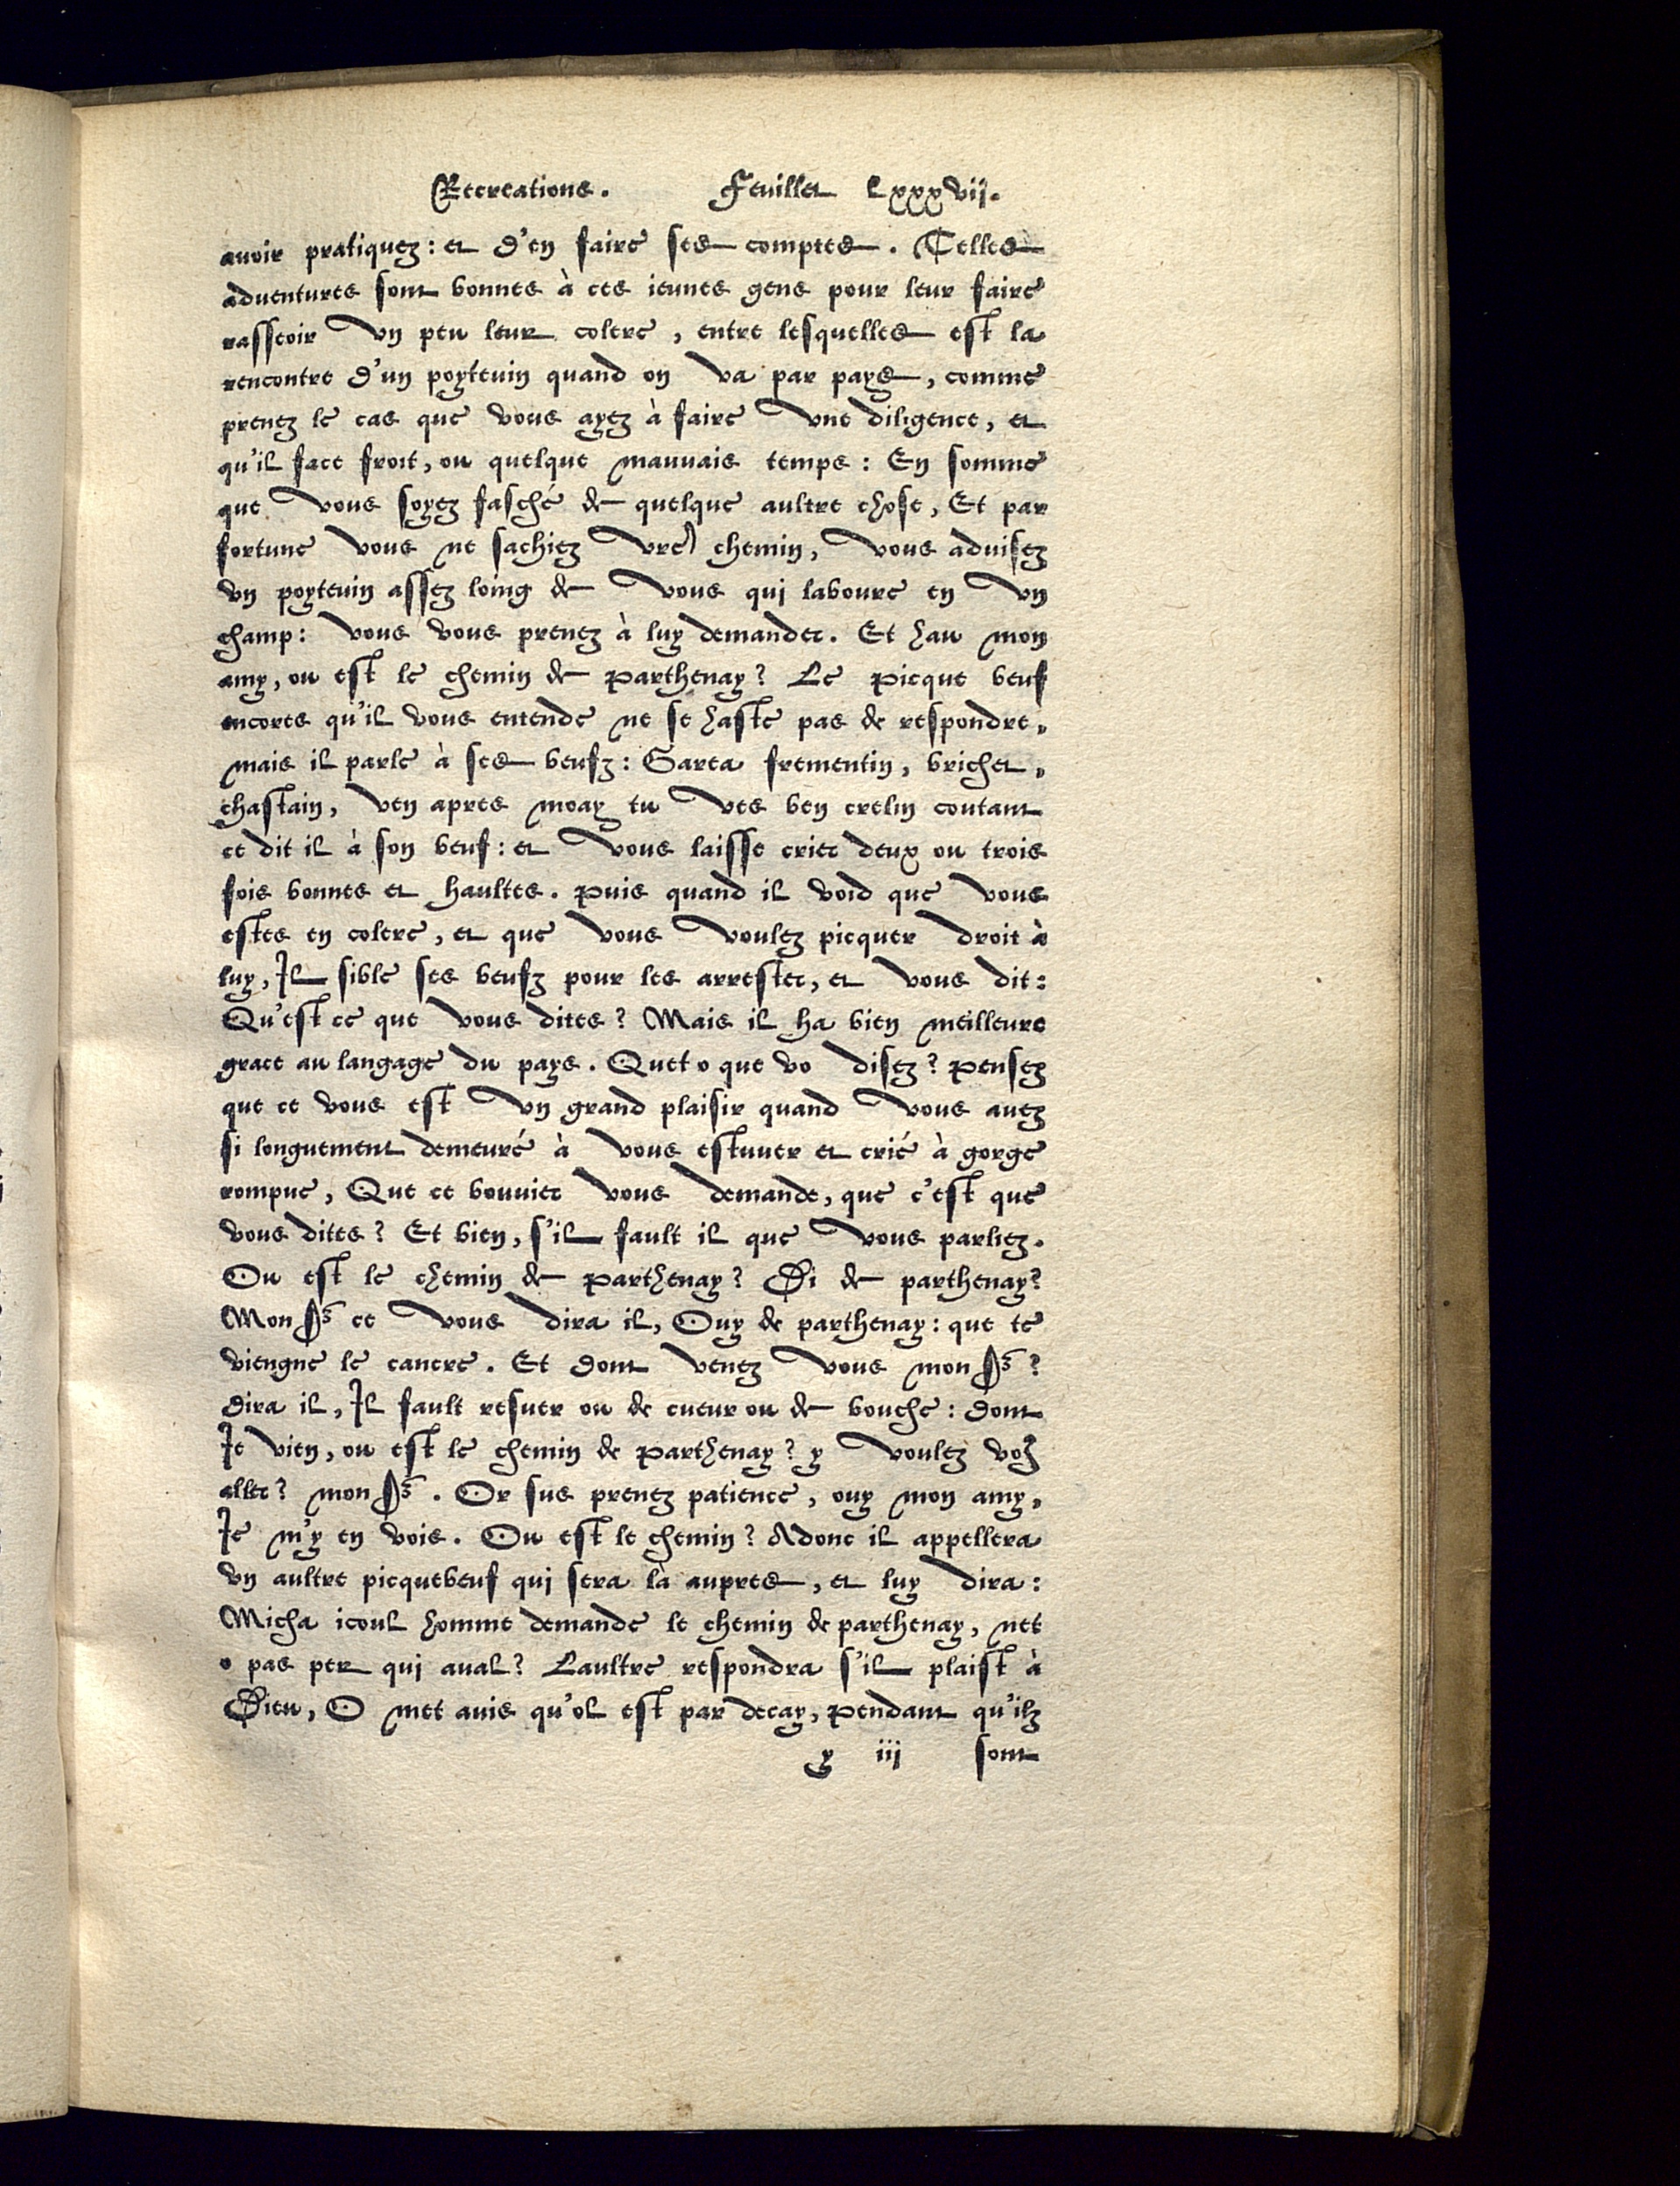 Recreations. Feuillet Lxxxvij.
auoir pratiquez: et d'en faire ses comptes. Telles
aduentures sont bonnes à ces ieunes gens pour leur faire
rasseoir vn peu leur colere, entre lesquelles est la
rencontre d'un poyteuin quand on va par pays, comme
prenez le cas que vous ayez à faire vne diligence, et
qu'il face froit, ou quelque mauuais temps: En somme
que vous soyez fasché de quelque aultre chose, Et par
fortune vous ne sachiez vre chemin, vous aduisez
vn poyteuin assez loing de vous qui laboure en vn
champ: vous vous prenez à luy demander. Et hau mon
amy, ou est le chemin de parthenay? Le picque beuf
encores qu'il vous entende ne se haste pas de respondre,
mais il parle à ses beufz: Garea frementin, brichet,
chastain, ven apres moay tu ves ben crelin coutant
ce dit il à son beuf: et vous laisse crier deux ou trois
fois bonnes et haultes. puis quand il void que vous
estes en colere, et que vous voulez picquer droit à
luy, Il sible ses beufz pour les arrester, et vous dit:
Qu'est ce que vous dites? Mais il ha bien meilleure
grace au langage du pays. Quet o que vo disez? pensez
que ce vous est vn grand plaisir quand vous auez
si longuement demeuré à vous estuuer et crié à gorge
rompue, Que ce bouuier vous demande, que c'est que
vous dites? Et bien, s'il fault il que vous parliez.
Ou est le chemin de parthenay? Di de parthenay?
Mon Sr ce vous dira il, Ouy de parthenay: que te
viengne le cancre. Et dont venez vous mon Sr?
dira il, Il fault resuer ou de cueur ou de bouche: dont
Ie vien, ou est le chemin de parthenay? y voulez voz
aller? mon Sr. Or sus prenez patience, ouy mon amy,
Ie m'y en vois. Ou est le chemin? Adonc il appellera
vn aultre picquebeuf qui sera là aupres, et luy dira:
Micha icoul homme demande le chemin de parthenay, net
o pas per qui aual? Laultre respondra s'il plaist à
Dieu, O met auis qu'ol est par decay, pendant qu'ilz
y iij sont